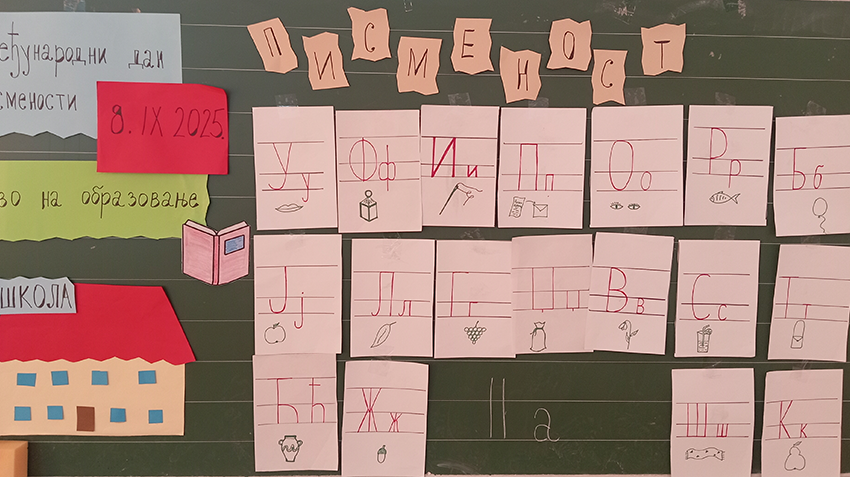 ПИСМЕНОСТ
еђународни дан
смености
8. IX 2025.
во на образовање
ШКОЛА
Уу Фф Ии Пп Оо Рр Бб
Јј Лл Гг Џџ Вв Сс Тт
Ћћ Жж а Шш Кк